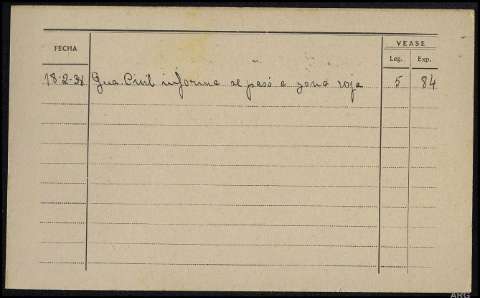 FECHA
VEASE
Leg. Exp.
Gua. Civil informa se pasó a zona roja 5 84
ARG